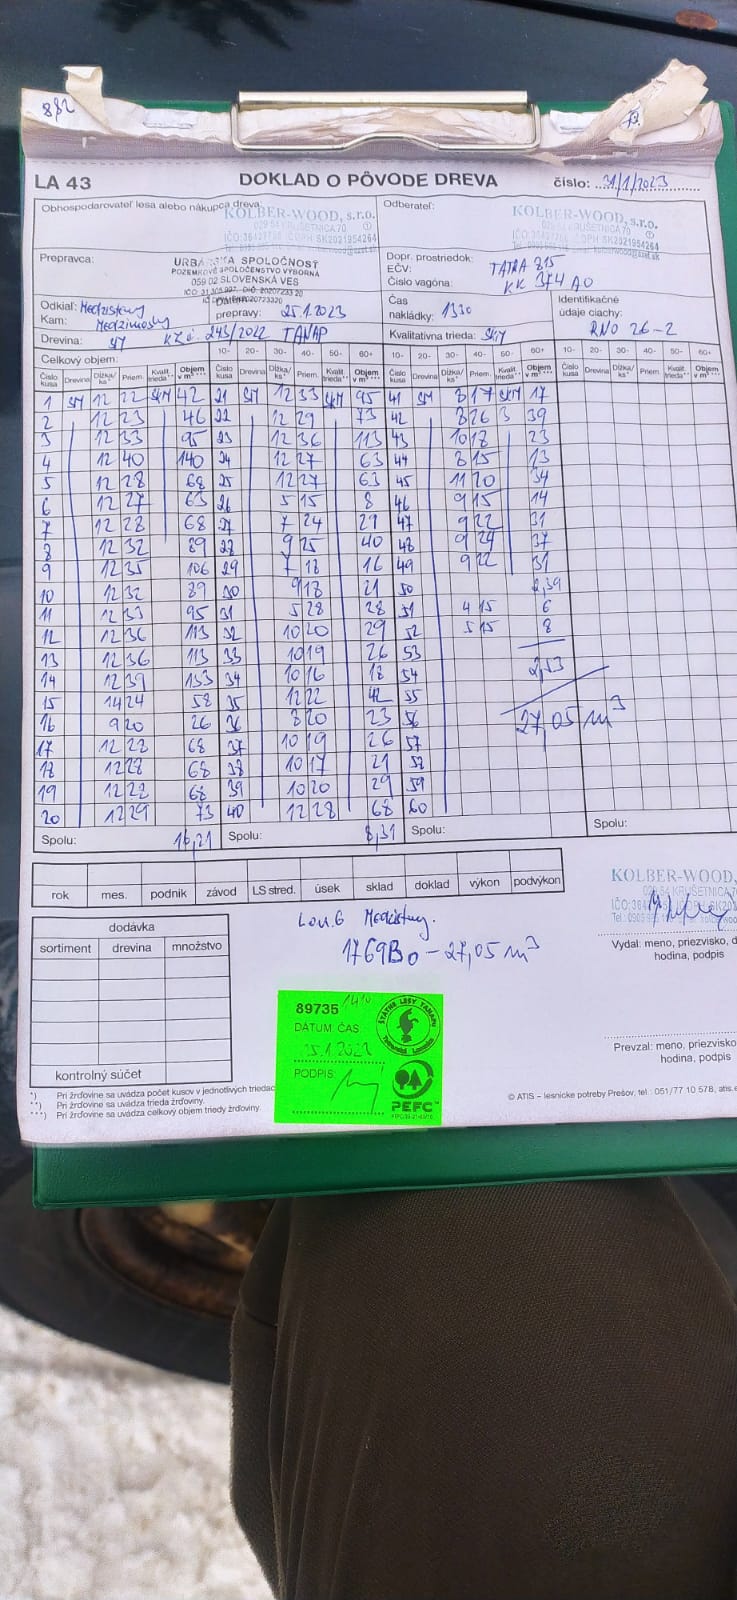 882
LA 43 DOKLAD O PÔVODE DREVA číslo: 31/1/2023
Obhospodarovateľ lesa alebo nákupca dreva:
KOLBER-WOOD, s.r.o.
029 54 KRUŠETNICA 70
Odberateľ:
KOLBER-WOOD, s.r.o.
029 54 KRUŠETNICA 70
IČO: 36427764 IČ DPH: SK2021954264
Prepravca:
URBÁRSKA SPOLOČNOSŤ
POZEMKOVÉ SPOLOČENSTVO VÝBORNÁ
059 02 SLOVENSKÁ VES
Dopr. prostriedok: TATRA 815
EČV: KK 374 AO
Číslo vagóna:
Odkiaľ: Medzisteny
Kam:
prepravy: 25.1.2023
Čas
nakládky: 1330
Identifikačné
údaje ciachy:
RNO 26-2
Drevina: SM KZ č. 243/2022 TANAP
Kvalitatívna trieda: SKM
Celkový objem: 10- 20- 30- 40- 50- 60+ 10- 20- 30- 40- 50- 60+ 10- 20- 30- 40- 50- 60+
Číslo kusa Drevina Dĺžka/ks* Priem. Kvalit. trieda** Objem v m³***
1 SM 12 22 SKM 42 21 SM 12 33 SKM 95 41 SM 8 17 SKM 17
2 12 23 46 22 12 29 73 42 8 26 3 39
3 12 33 95 23 12 36 113 43 10 18 23
4 12 40 140 24 12 27 63 44 8 15 13
5 12 28 68 25 12 27 63 45 11 20 34
6 12 27 63 26 5 15 8 46 9 15 14
7 12 28 68 27 7 24 29 47 9 22 31
8 12 32 89 28 9 25 40 48 9 24 37
9 12 35 106 29 7 18 16 49 9 22 31
10 12 32 89 30 9 18 21 50 2,39
11 12 33 95 31 5 28 28 51 4 15 6
12 12 36 113 32 10 20 29 52 5 15 8
13 12 36 113 33 10 19 26 53
14 12 39 133 34 10 16 18 54 2,53
15 14 24 58 35 12 22 42 55
16 9 20 26 36 8 20 23 56 27,05 m³
17 12 28 68 37 10 19 26 57
18 12 28 68 38 10 17 21 58
19 12 28 68 39 10 20 29 59
20 12 29 73 40 12 28 68 60
Spolu: 16,21 Spolu: 8,31 Spolu: Spolu:
rok mes. podnik závod LS stred. úsek sklad doklad výkon podvýkon
KOLBER-WOOD,
029 54 KRUŠETNICA 70
dodávka
sortiment drevina množstvo
1769B0 - 27,05 m³
Vydal: meno, priezvisko, d
hodina, podpis
89735 1410
DÁTUM ČAS
PODPIS:
ŠTÁTNE LESY TANAPU
PEFC™
Prevzal: meno, priezvisko
hodina, podpis
kontrolný súčet
*) Pri žrďovine sa uvádza počet kusov v jednotlivých triedac
**) Pri žrďovine sa uvádza trieda žrďoviny.
***) Pri žrďovine sa uvádza celkový objem triedy žrďoviny.
© ATIS – lesnícke potreby Prešov, tel.: 051/77 10 578, atis.e